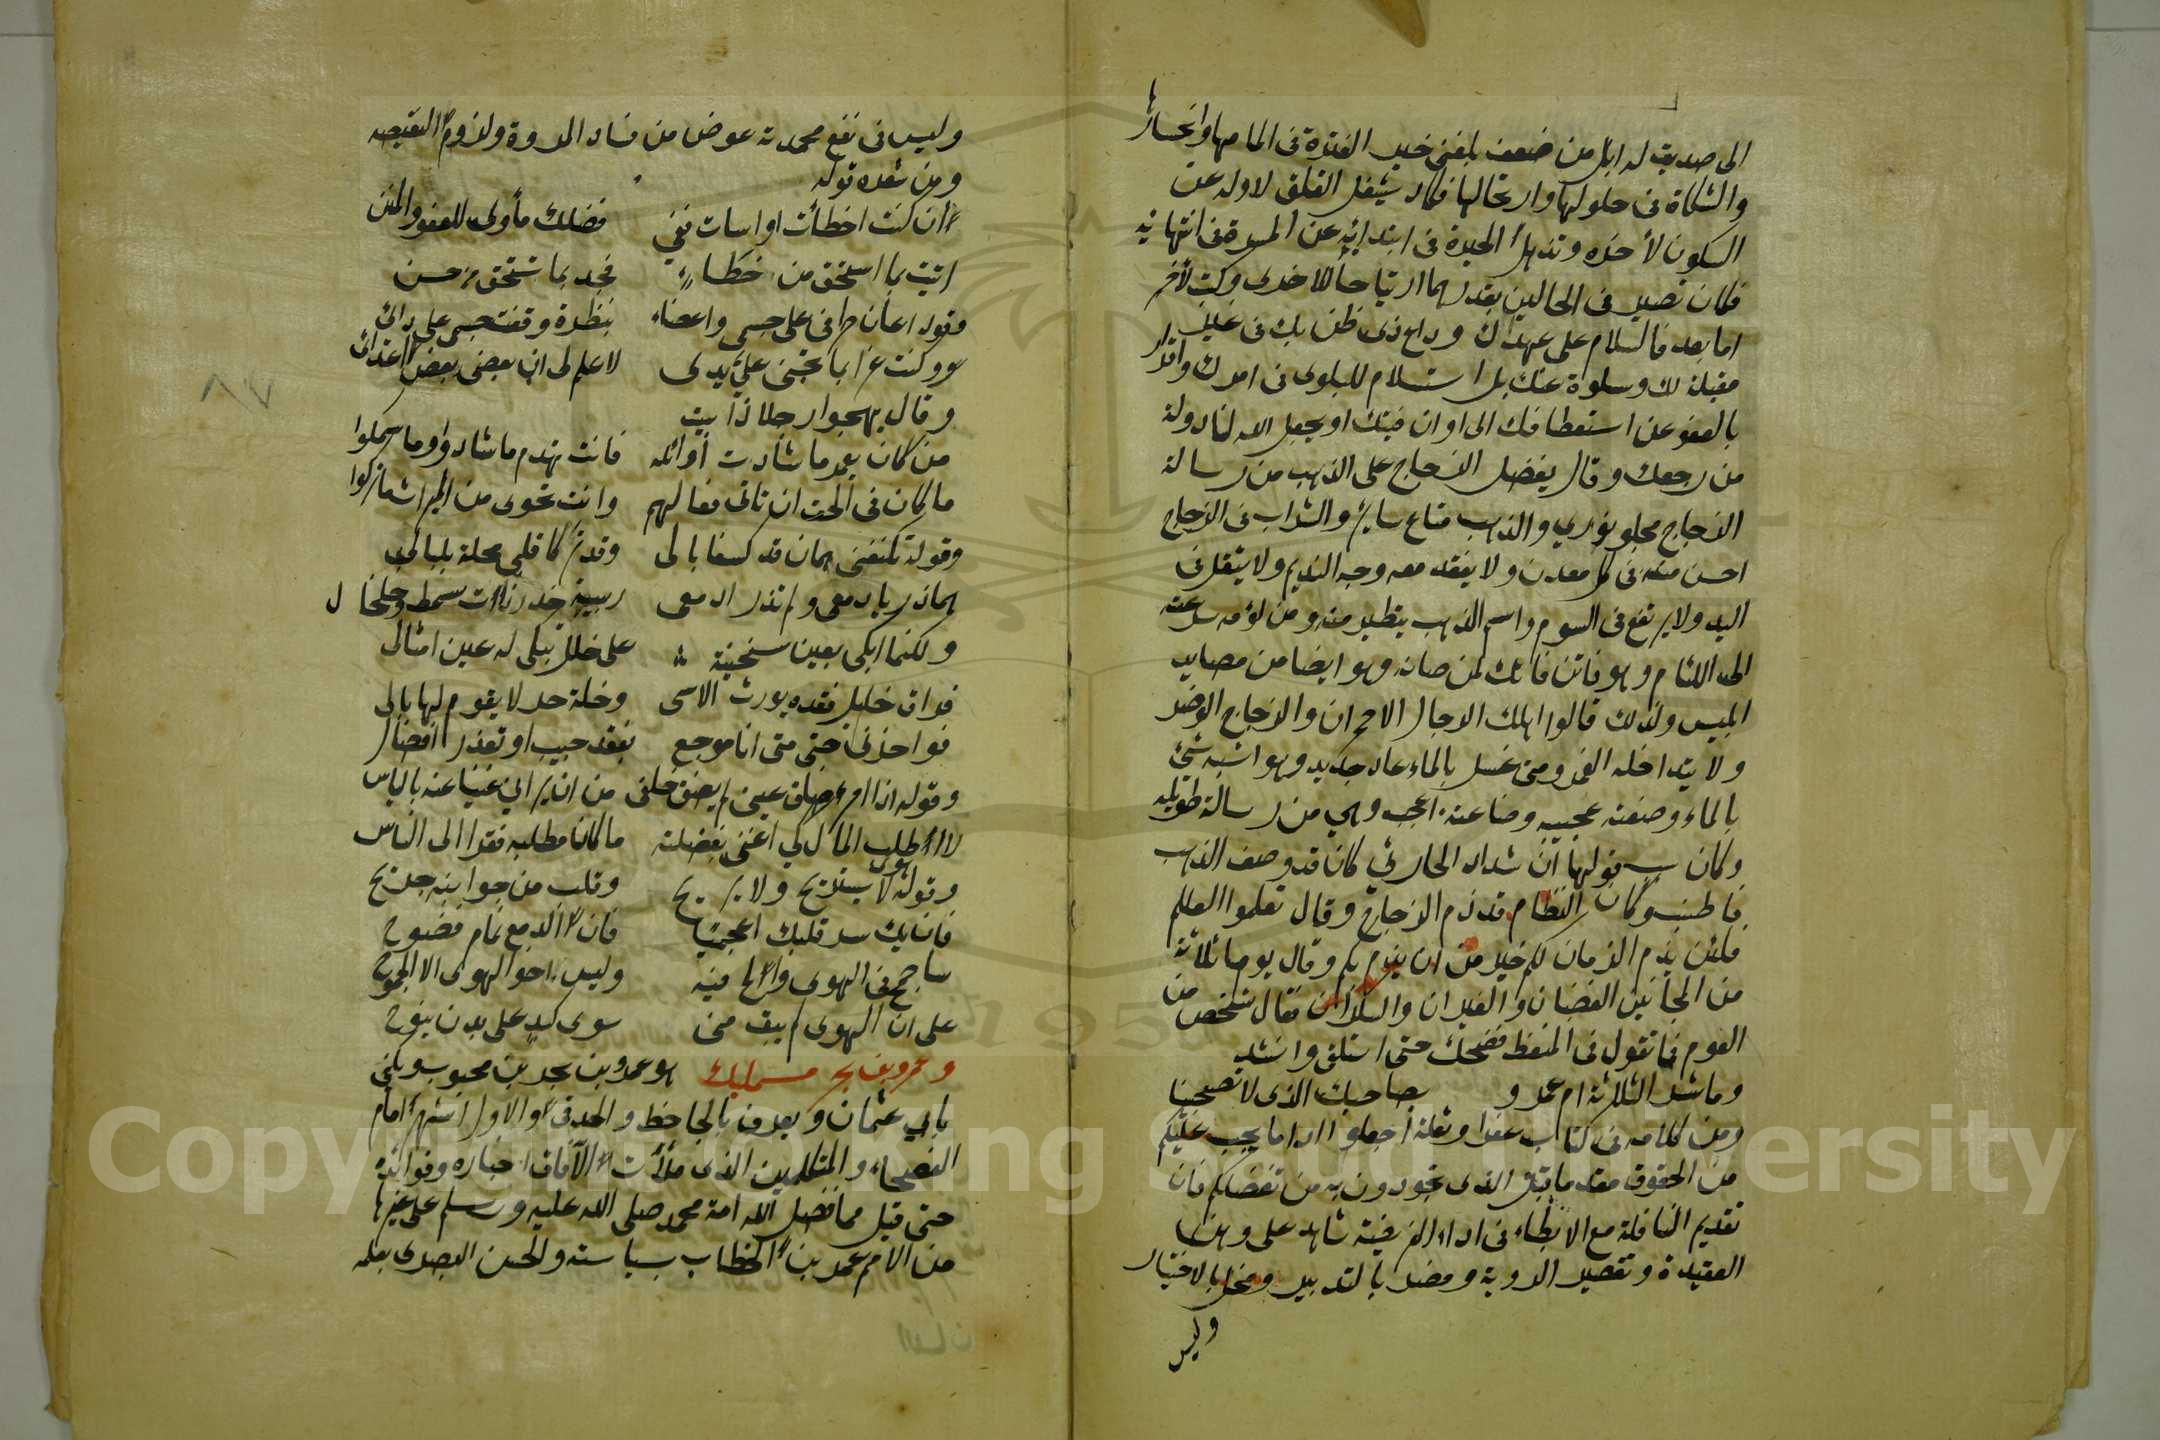 الى صديق له ابل من ضعف بلغني خبر الفترة في المامها وانحسارها
والشكاة في حلولها وارتحالها فكاد يشغل القلق لاوله عن
السكون لأخره وتذهل الحيرة في ابتدائه عن المسرة في انتهائه
فكان تصبر في الحالين بقدرهما ارتياحا للاخرى وكتب لآخر
اما بعد فالسلام على عهدك وداع ذي ظن بك في غير
مقيلة لك وسلوة عنك بل استسلام للبلوى في امرك واقرار
بالعفو عن استعطافك الى اوان فيئتك او يجعل الله لنا دولة
من رجعك وقال يفضل الزجاج على الذهب من رسالة
الزجاج مجلو نوري والذهب متاع ساير والشراب في الزجاج
احسن منه في كل معدن ولا يفقد معه وجه النديم ولا يثقل في
اليد ولا يرتفع في السوم واسم الذهب يتطير منه ومن لؤمه سرعته
الى اللئام وهو فاتن فاتك لمن صانه وهو ايضا من مصايد
ابليس ولذلك قالوا اهلك الرجال الاحمران والزجاج الوضر
ولا يتداخله الغمر ومتى غسل بالماء عاد جديد وهو اشبه شئ
بالماء وصنعته عجيبه وصناعته اعجب وهي من رسالة طويله
وكان سبب قولها أن شداد الحارثي كان قد وصف الذهب
فاطنب وكان النظام قد ذم الزجاج وقال تعلموا العلم
فلئن يذم الزمان لكم خير من ان يذم بكم وقال يوما ثلاثة
من المجانين الغضبان والغيران والسكران فقال شخص من
القوم فما تقول في المنعظ فضحك حتى استلقى وانشد
وما شر الثلاثة ام عمرو بصاحبك الذي لا تصبحينا
ومن كلامه في كتاب عفوا وثقلة اجعلوا اداما يجب عليكم
من الحقوق مقدما قبل الذي تجودون به من تفضلكم فان
تقديم النافلة مع الابطاء في اداء الفريضة شاهد على وهن
العقيدة وتقصير الروية ومضر بالتدبير ومخل بالاختيار
وليس
وليس في نفع محمدته عوض من فساد المروة ولزوم النقيصه
ومن شعره قوله
ان كنت اخطأت او اسات ففي فضلك مأوى للعفو والمنن
اتيت بما استحق من خطاء فجد بما تستحق من حسن
وقوله اعان طرفي على جسمي واعضاء بنظرة وقفت جسمي على دائي
وكنت غرا بما تجني علي يدي لا علم لي ان بعضي بعض اعدائي
وقال يهجوا رجلا ذا بيت
من كان يعمر ما شادت أوائله فانت تهدم ما شادوا وما سمكوا
ما كان في الحق ان تاتي فعالهم وانت تحوي من الميراث ما تركوا
وقوله تكنفني همان قد كسفا بالي وقد تركا قلبي محلة بلبالي
هما ذريا دمعي ولم تذر ادمعي ربيبة خدر ذات سمط وخلخال
ولكنما ابكي بعين سخينة على خلل تبكي له عين امثالي
فراق خليل فقده يورث الاسى وخلة حر لا يقوم لها بالي
فواحزني حتى متى انا موجع بفقد حبيب او تعذر افضال
وقوله اذا امرء ضاق عني لم يضق خلقي من ان يراني غنيا عنه بالياس
لا اطلب المال كي اغنى بفضلته ما كان مطلبه فقرا الى الناس
وقوله هوى لا يستريح ولا يريح وقلب من جوا بنه جريح
فان يك سر قلبك اعجميا فان الدمع نمام فصوح
سابح في الهوى وارح فيه وليس اخو الهوى الا الجموح
على ان الهوى لم يبق مني سوى كبد على بدن ينوح
وعمرو بن بحر مسابك هو عمرو بن بحر بن محبوب ويكنى
بابي عثمان ويعرف بالجاحظ والحدقي والاول اشهر امام
الفصحاء والمتكلمين الذي ملأت الآفاق اخباره وفوائده
حتى قيل مما فضل الله امة محمد صلى الله عليه وسلم على غيرها
من الامم عمر بن الخطاب بسياسته والحسن البصري بعلمه